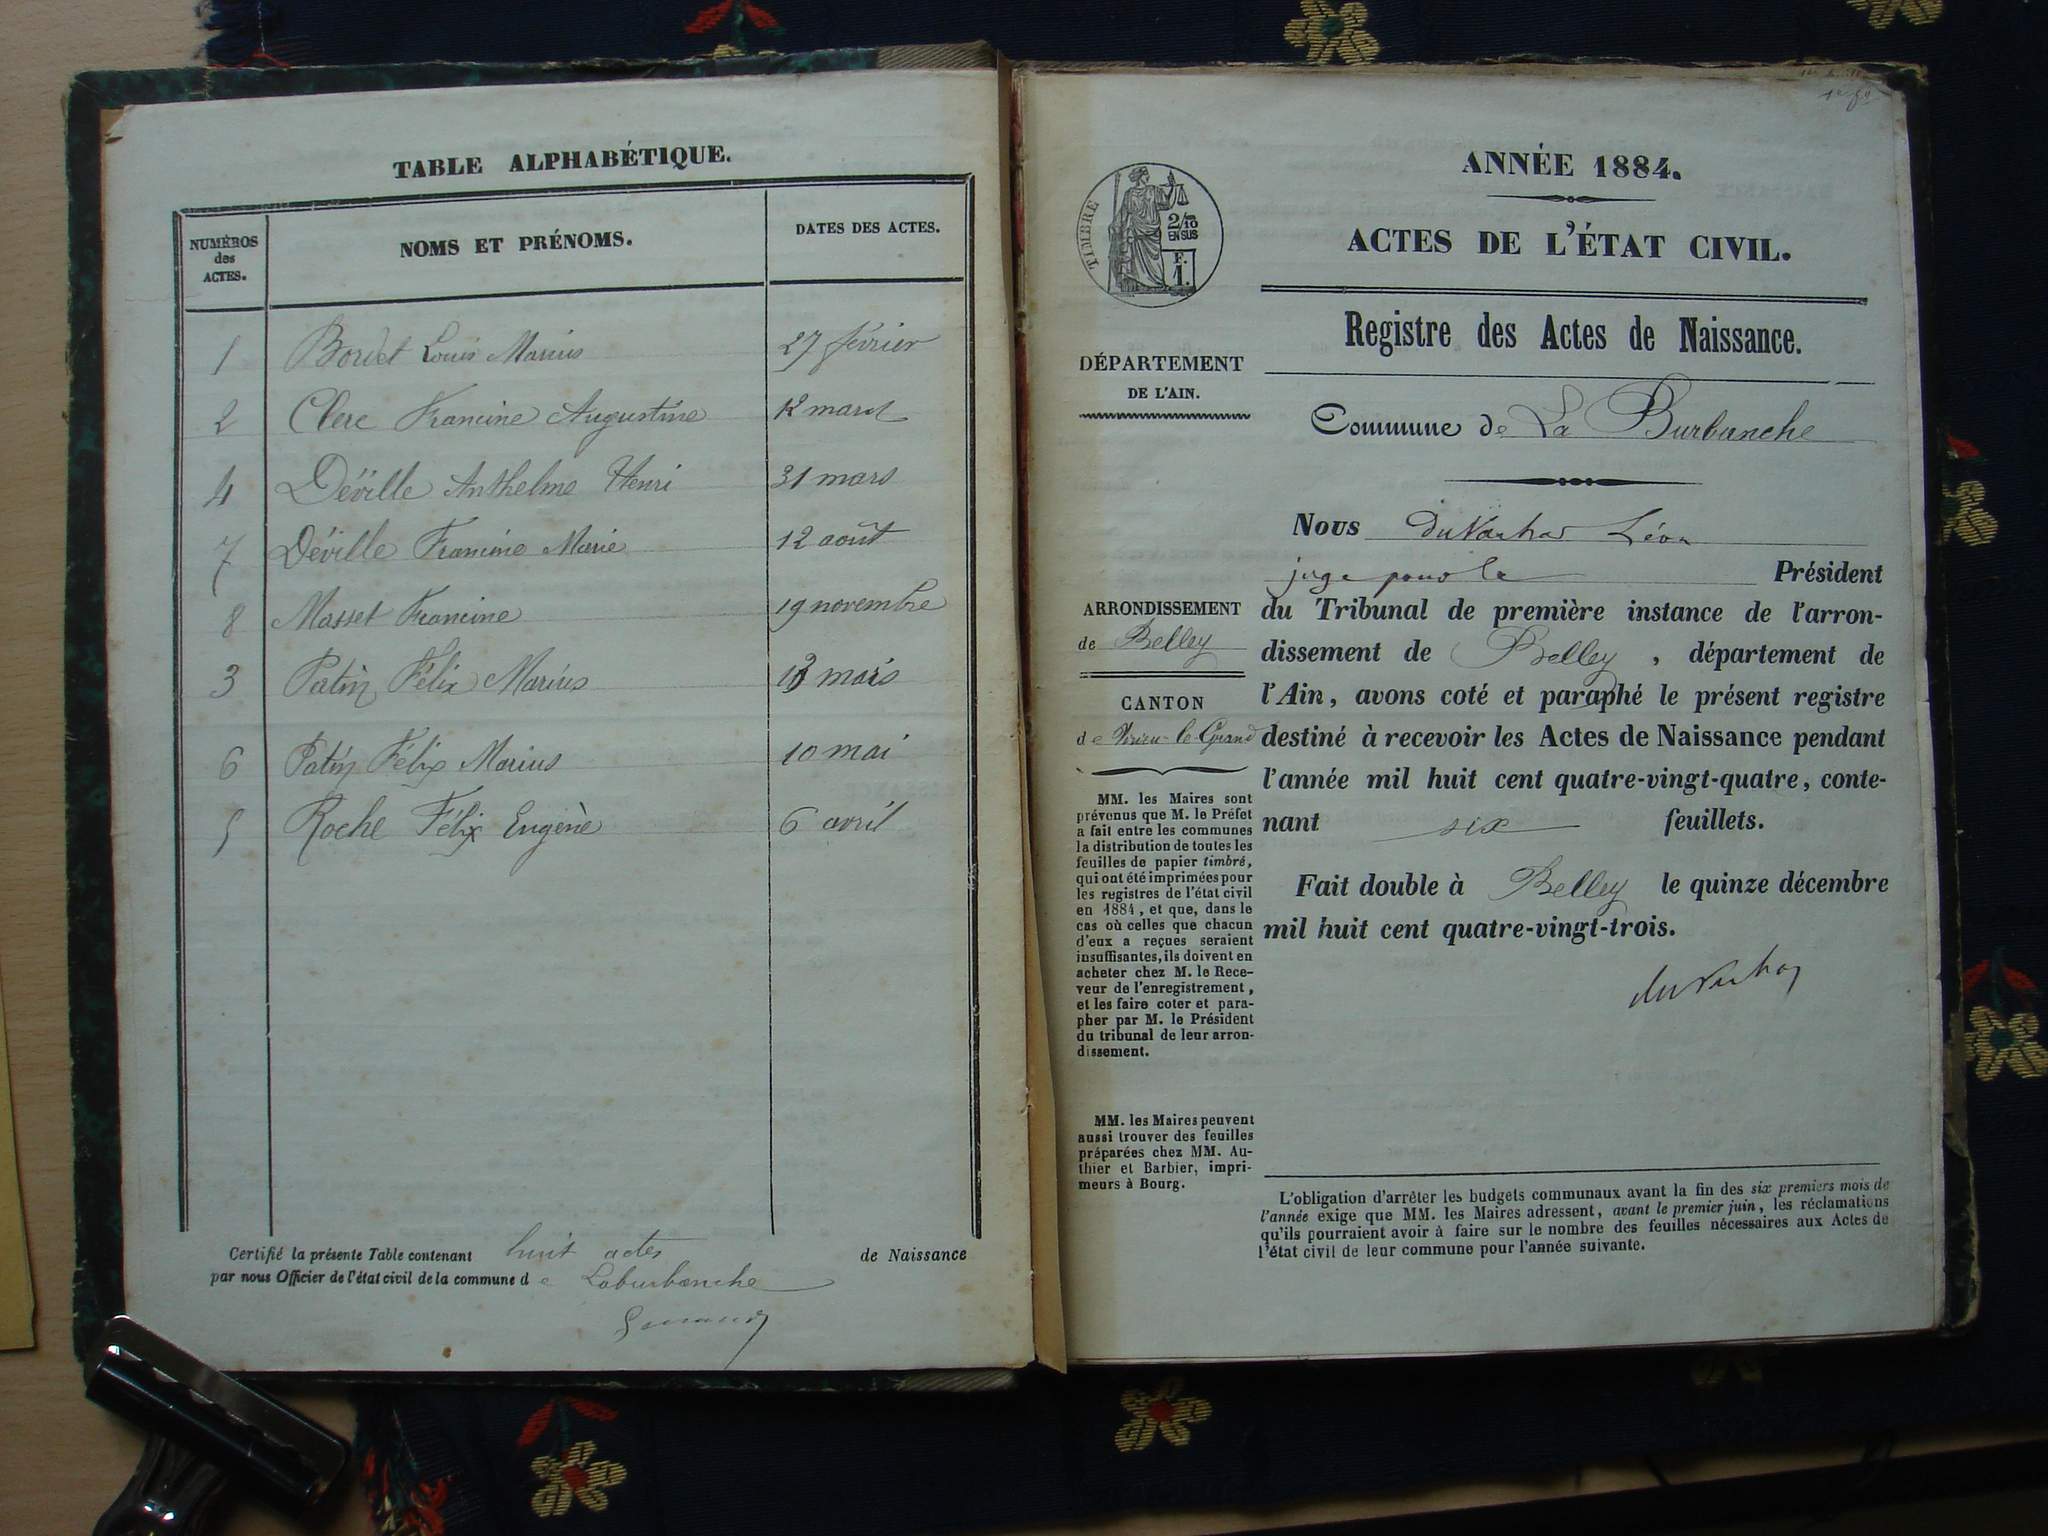 TABLE ALPHABÉTIQUE.
NUMÉROS des ACTES.
NOMS ET PRÉNOMS.
DATES DES ACTES.
1 Bordet Louis Marius 27 février
2 Clerc Francine Augustine 12 mars
4 Déville Anthelme Henri 31 mars
7 Déville Francine Marie 12 août
8 Masset Francine 19 novembre
3 Patin Félix Marius 13 mars
6 Patin Félix Marius 10 mai
5 Roche Félix Eugène 6 avril
Certifié la présente Table contenant huit actes de Naissance
par nous Officier de l'état civil de la commune de Laburbanche
TIMBRE
2/10
EN SUS
F.
1.
ANNÉE 1884.
ACTES DE L'ÉTAT CIVIL.
Registre des Actes de Naissance.
Commune de La Burbanche
DÉPARTEMENT
DE L'AIN.
ARRONDISSEMENT
de Belley
CANTON
de Virieu-le-Grand
MM. les Maires sont
prévenus que M. le Préfet
a fait entre les communes
la distribution de toutes les
feuilles de papier timbré,
qui ont été imprimées pour
les registres de l'état civil
en 1884, et que, dans le
cas où celles que chacun
d'eux a reçues seraient
insuffisantes, ils doivent en
acheter chez M. le Rece-
veur de l'enregistrement,
et les faire coter et para-
pher par M. le Président
du tribunal de leur arron-
dissement.
MM. les Maires peuvent
aussi trouver des feuilles
préparées chez MM. Au-
thier et Barbier, impri-
meurs à Bourg.
Nous Léon
juge pour le Président
du Tribunal de première instance de l'arron-
dissement de Belley, département de
l'Ain, avons coté et paraphé le présent registre
destiné à recevoir les Actes de Naissance pendant
l'année mil huit cent quatre-vingt-quatre, conte-
nant six feuillets.
Fait double à Belley le quinze décembre
mil huit cent quatre-vingt-trois.
L'obligation d'arrêter les budgets communaux avant la fin des six premiers mois de
l'année exige que MM. les Maires adressent, avant le premier juin, les réclamations
qu'ils pourraient avoir à faire sur le nombre des feuilles nécessaires aux Actes de
l'état civil de leur commune pour l'année suivante.